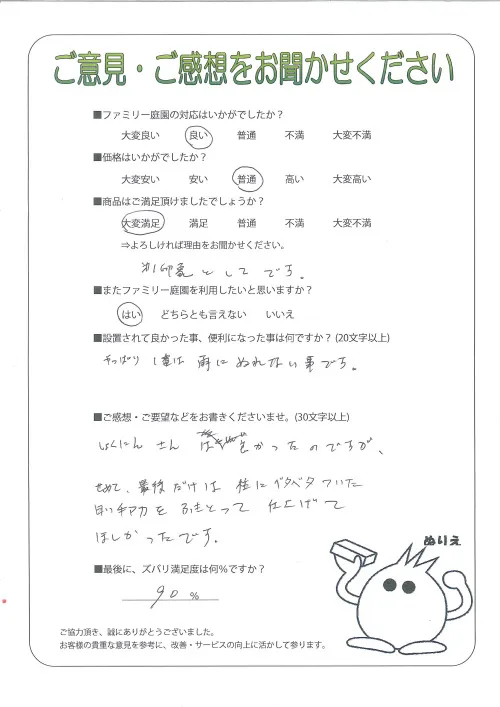 ご意見・ご感想をお聞かせください
■ファミリー庭園の対応はいかがでしたか？
大変良い 良い 普通 不満 大変不満
■価格はいかがでしたか？
大変安い 安い 普通 高い 大変高い
■商品はご満足頂けましたでしょうか？
大変満足 満足 普通 不満 大変不満
⇒よろしければ理由をお聞かせください。
としてです。
■またファミリー庭園を利用したいと思いますか？
はい どちらとも言えない いいえ
■設置されて良かった事、便利になった事は何ですか？(20文字以上)
やっぱり1番は雨にぬれない事です。
■ご感想・ご要望などをお書きくださいませ。(30文字以上)
しょくにんさん 良かったのですが、
せめて、最後だけは柱にベタベタついた
白い手アカをふきとって仕上げて
ほしかったです。
ぬりえ
■最後に、ズバリ満足度は何％ですか？
90 %
ご協力頂き、誠にありがとうございました。
お客様の貴重な意見を参考に、改善・サービスの向上に活かして参ります。